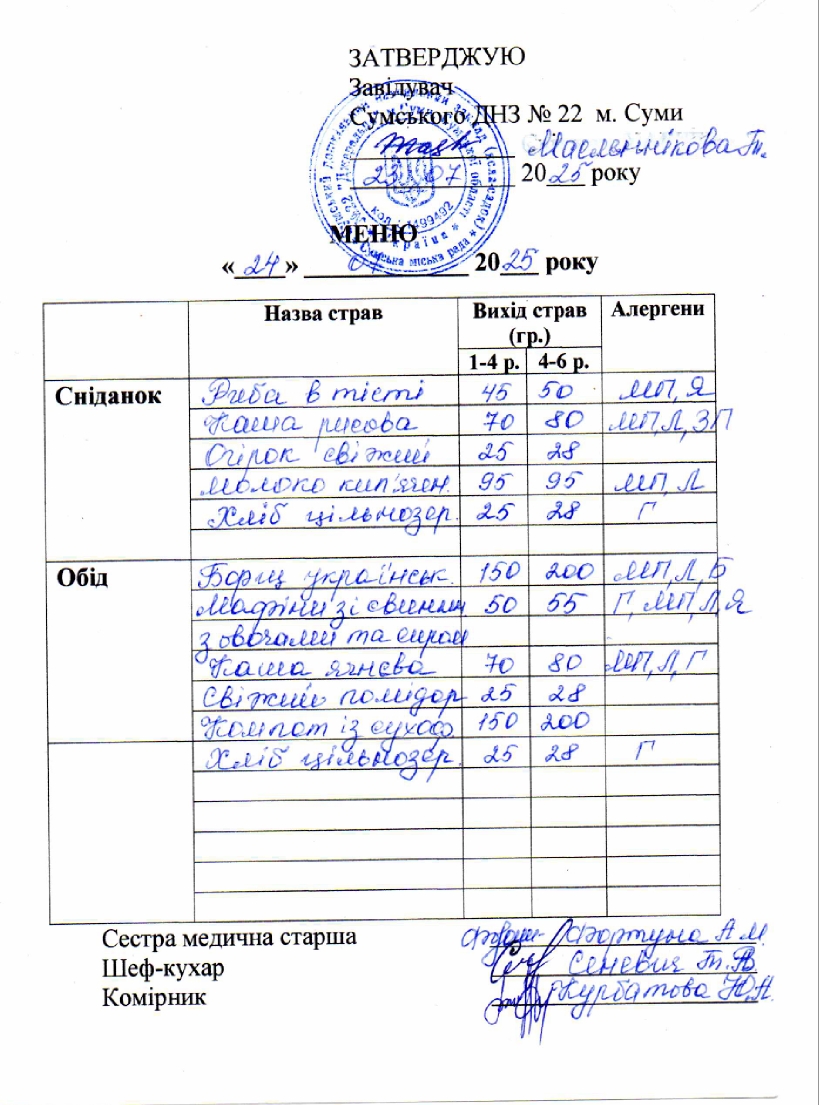 ЗАТВЕРДЖУЮ
Завідувач
Сумського ДНЗ № 22 м. Суми
Масленнікова Т.
23 07 2025 року
МЕНЮ
« 24 » 07 2025 року
Назва страв Вихід страв (гр.) Алергени
1-4 р. 4-6 р.
Сніданок Риба в тісті 45 50 МП, Я
Каша рисова 70 80 МП, Л, ЗП
Огірок свіжий 25 28
Молоко кип'ячен. 95 95 МП, Л
Хліб цільнозер. 25 28 Г
Обід Борщ українськ. 150 200 МП, Л, Б
Мафіни зі свинини 50 55 Г, МП, Л, Я
з овочами та сиром
Каша ячнєва 70 80 МП, Л, Г
Свіжий помідор 25 28
Компот із сухоф. 150 200
Хліб цільнозер. 25 28 Г
Сестра медична старша Фортуна А.М.
Шеф-кухар Сеневич Т.В.
Комірник Курбатова Ю.А.